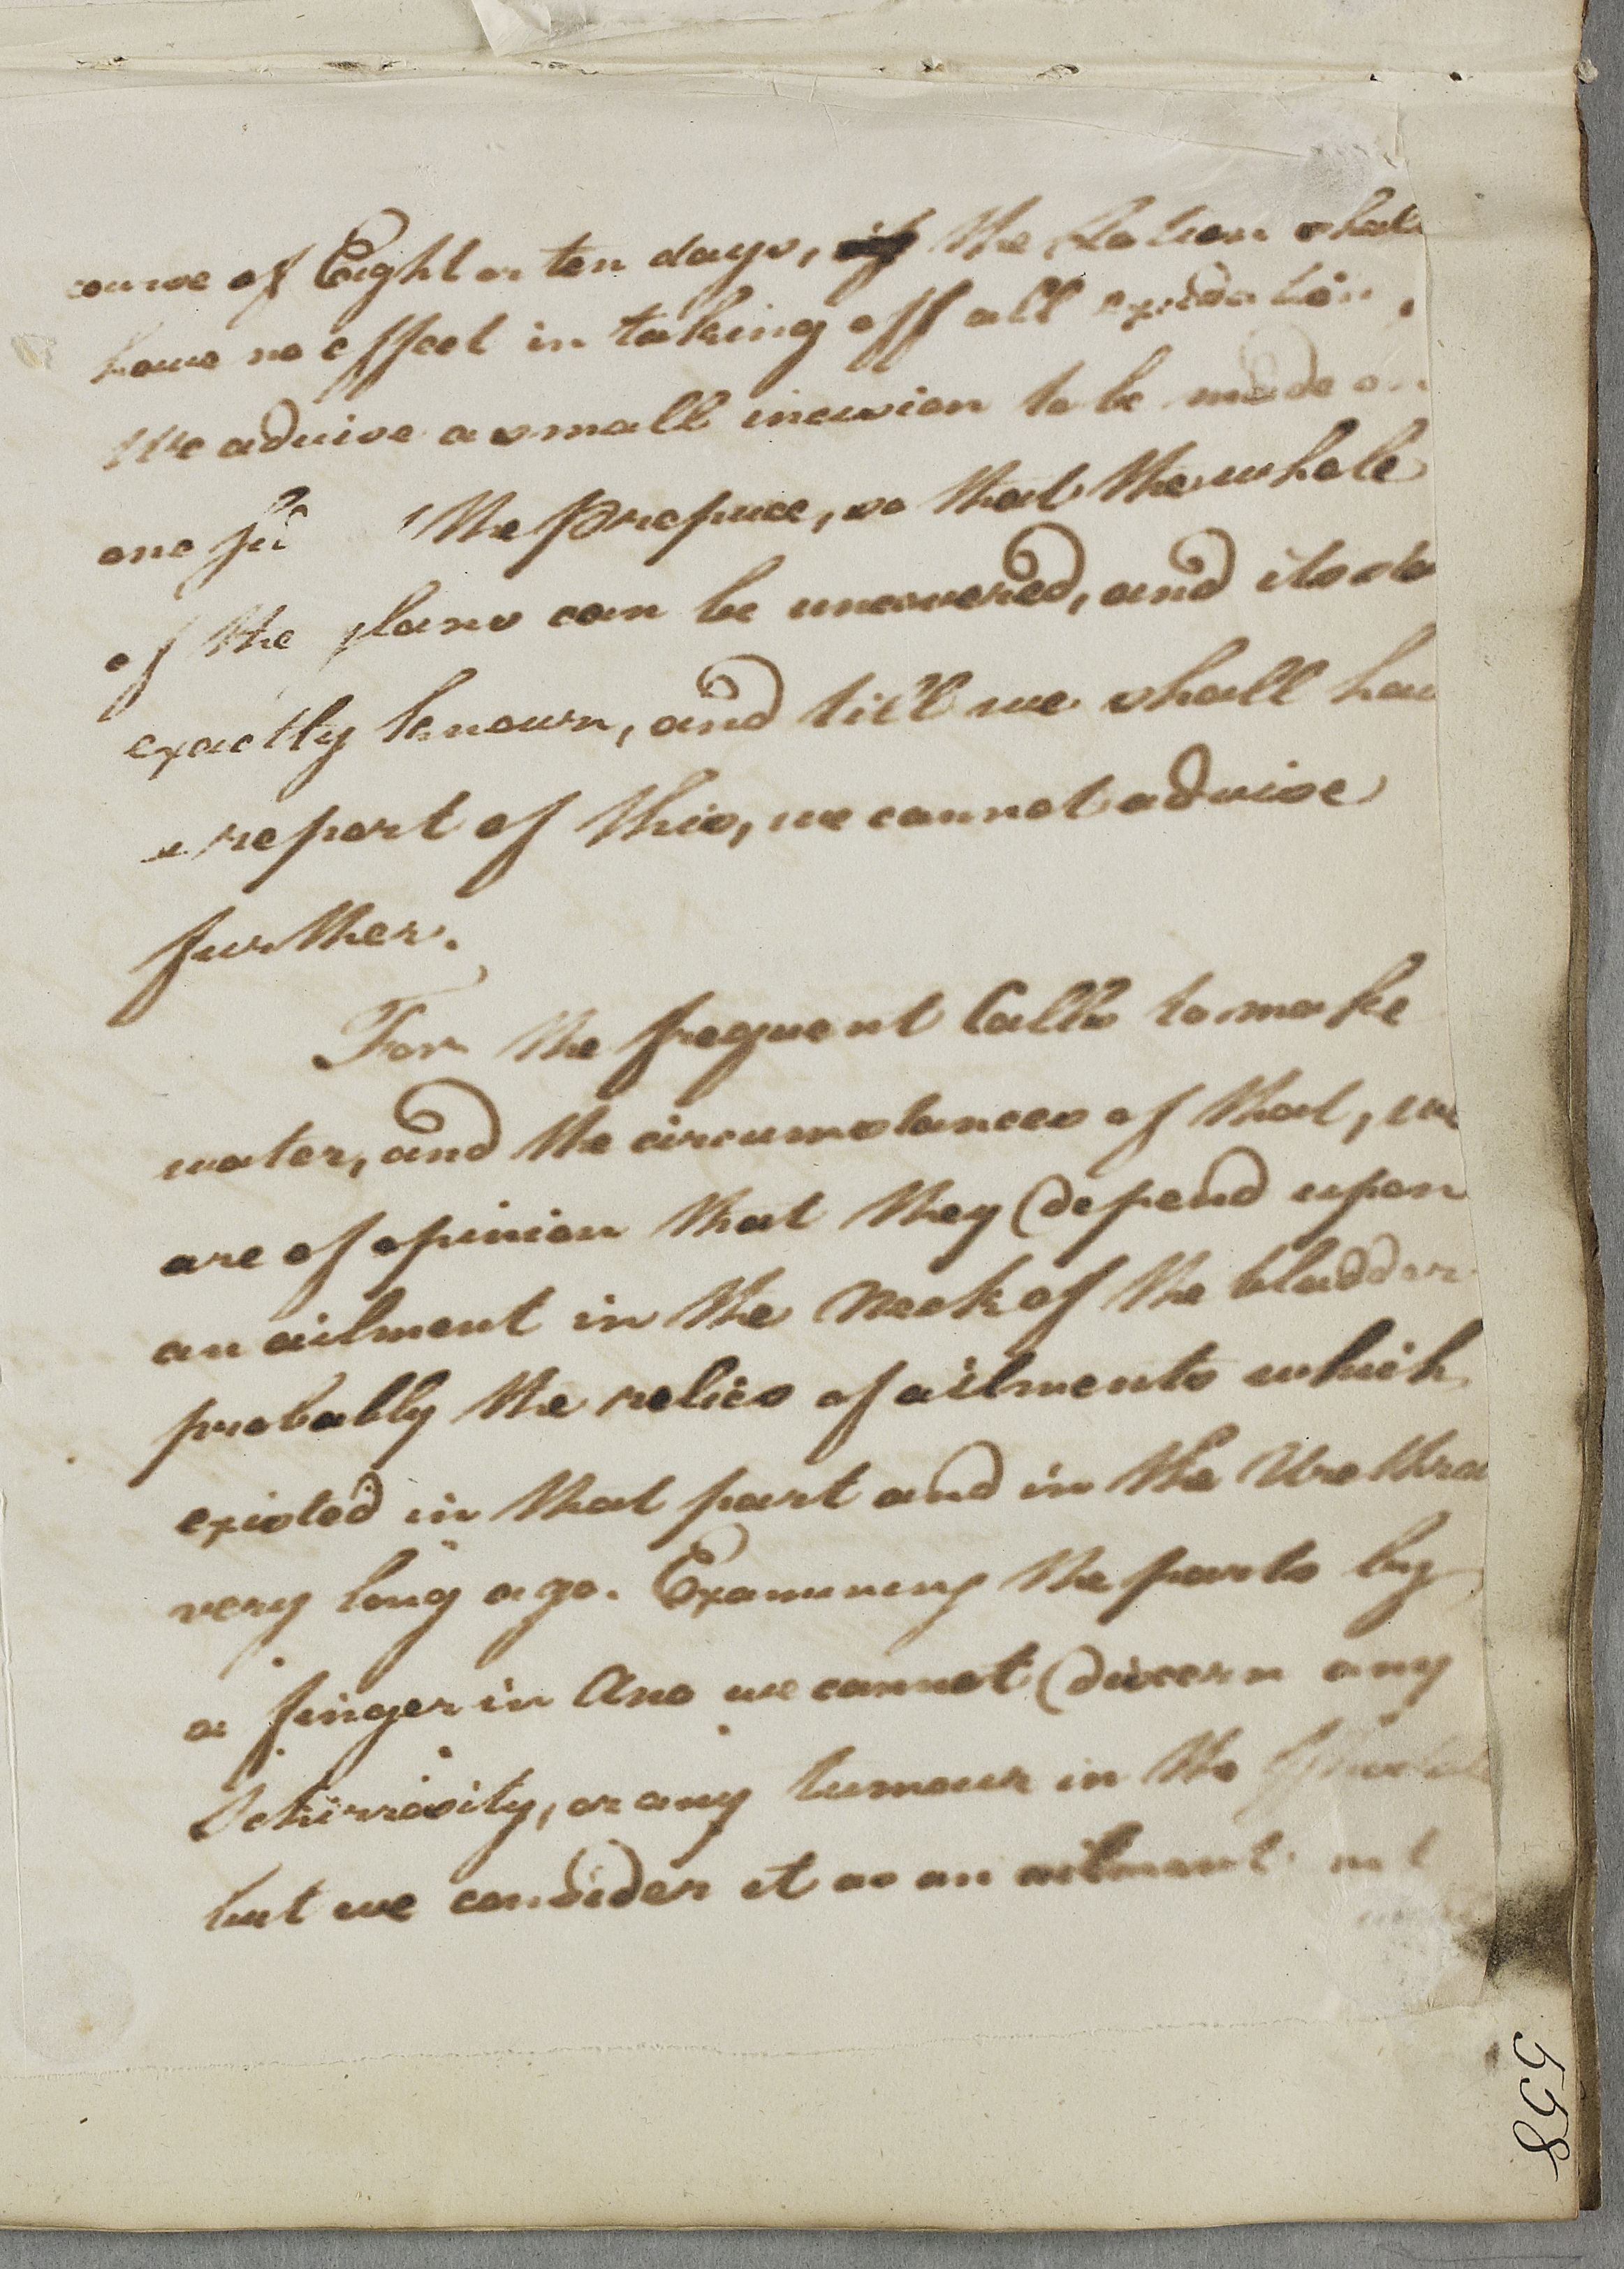 course of Eight or ten days, if the Lotion shall
have no effect in taking off all exudation,
We advise a small incision to be made on
one the Prepuce, so that the whole
of the glans can be uncovered, and its sta
exactly known, and till we shall hav
a report of this, we cannot advise
further.
For the frequent Calls to make
water, and the circumstances of that, we
are of opinion that they depend upon
an ailment in the Neck of the bladder
probably the relics of ailments which
existed in that part and in the Urethra
very long ago. Examining the parts by
a finger in Ano we cannot discern any
Schirrosity, or any tumour in the
but we consider it as an ailment not
558